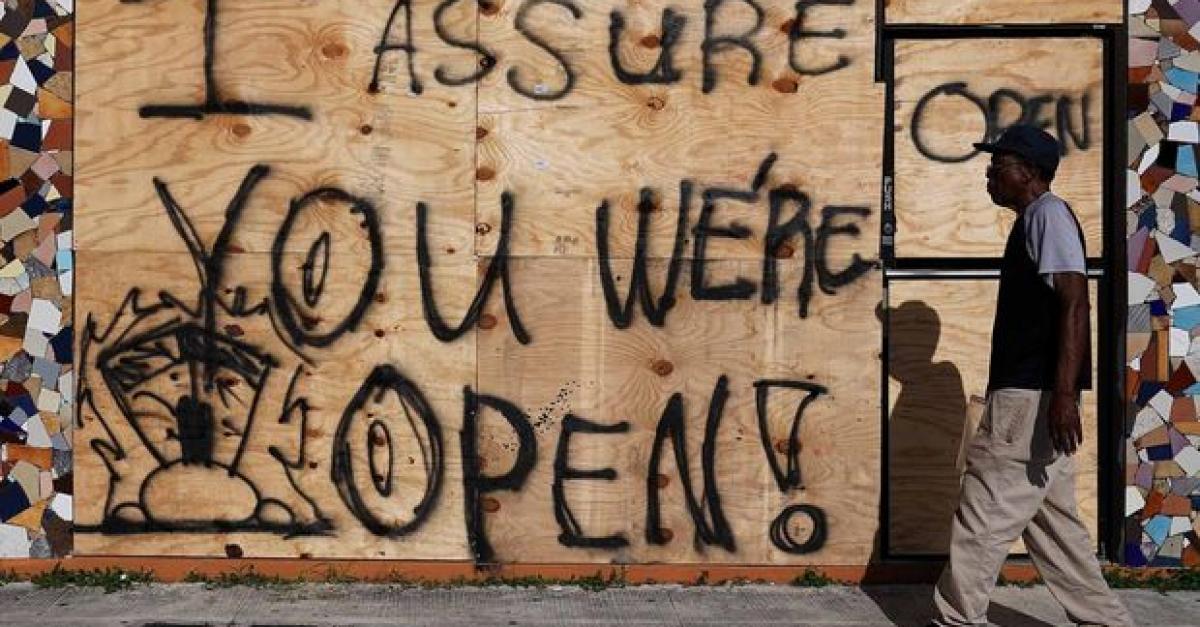 I ASSURE
YOU WE'RE
OPEN!
OPEN
PUSH